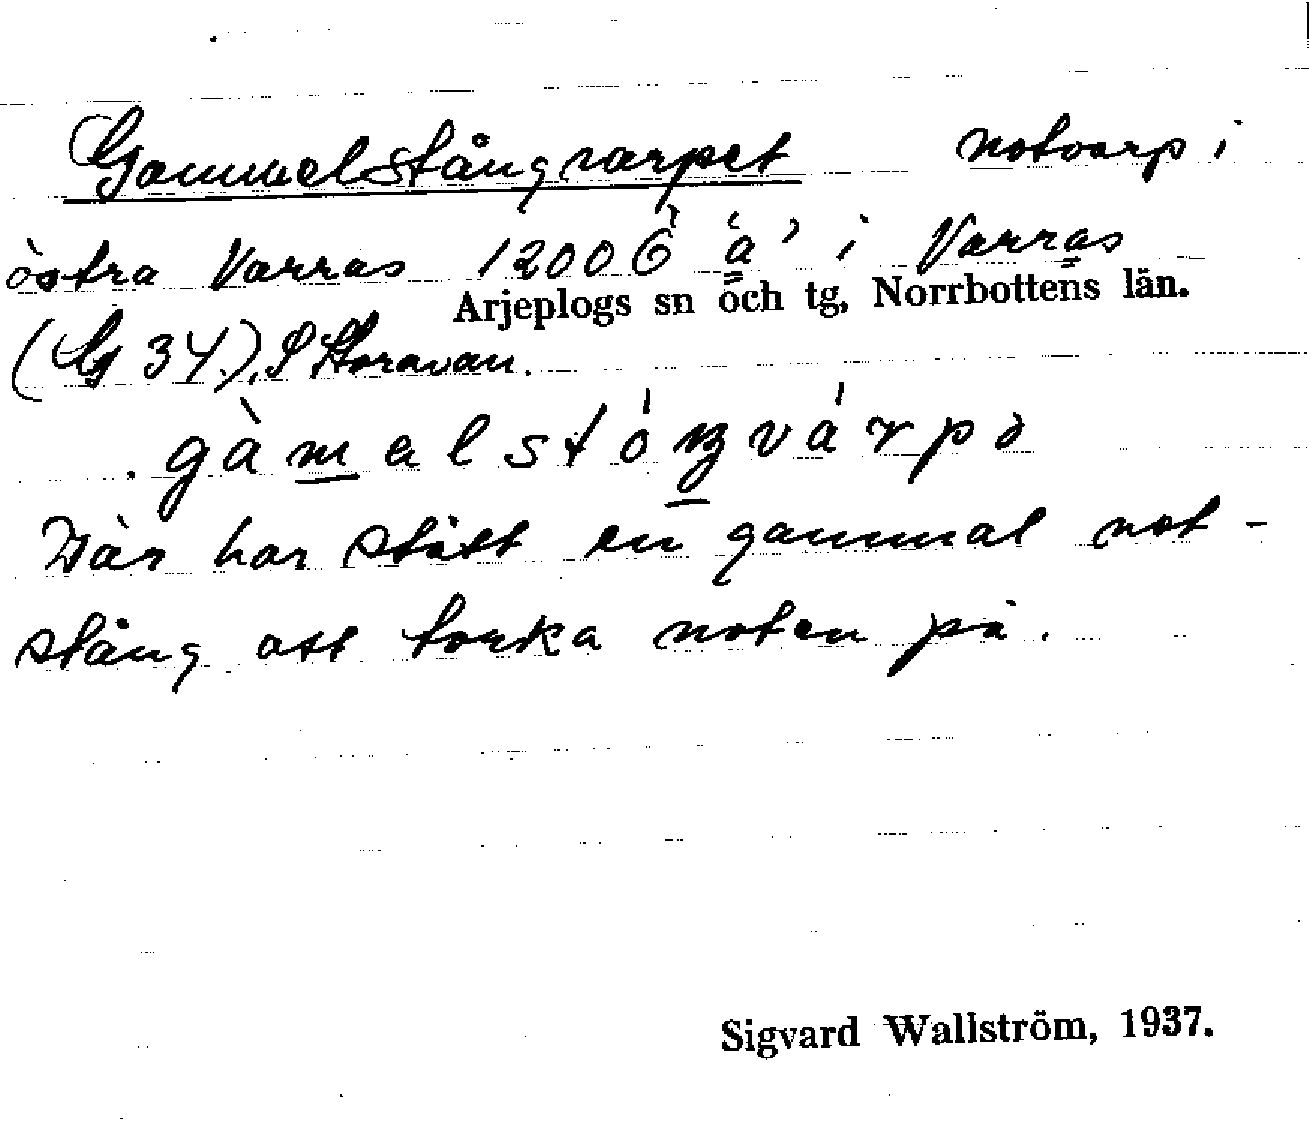 Gammelstångvarpet notvarp i
östra Varras 1200 Ö "a" i Varras
Arjeplogs sn och tg, Norrbottens län.
(Lg 34), S Storavan.
gàmalstóŋvárpə
Där har stått en gammal not-
stång att torka noten på.
Sigvard Wallström, 1937.